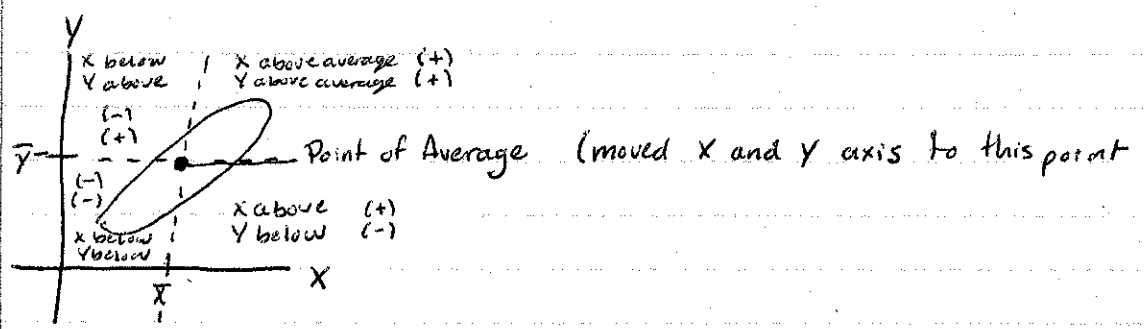 Y
X below X above average (+)
Y above Y above average (+)
(-)
(+)
Y̅ Point of Average (moved X and Y axis to this point
(-)
(-)
X above (+)
Y below (-)
X below
Y below
X
X̅